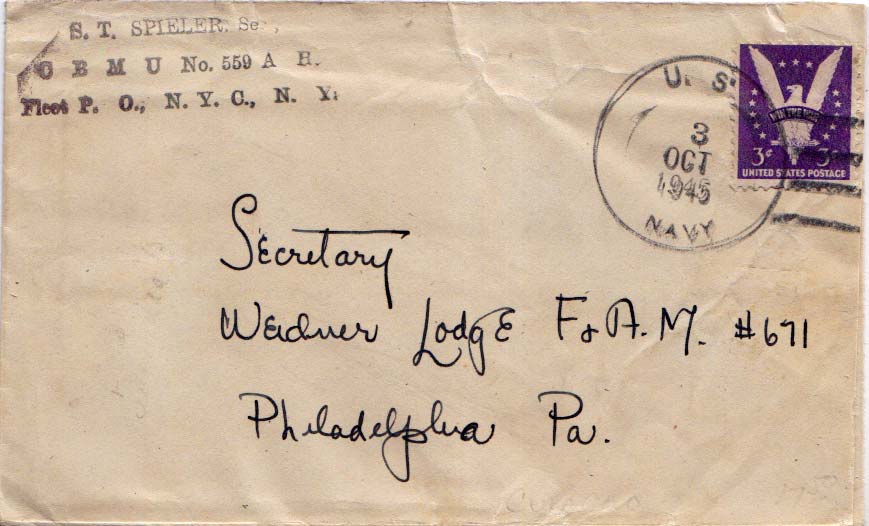 S. T. SPIELER. Se
C B M U No. 559 A H.
Fleet P. O., N. Y. C., N. Y.
U. S.
3
OCT
1945
NAVY
WIN THE WAR
3¢ 3¢
UNITED STATES POSTAGE
Secretary
Weidner Lodge F & A. M. #671
Philadelphia Pa.